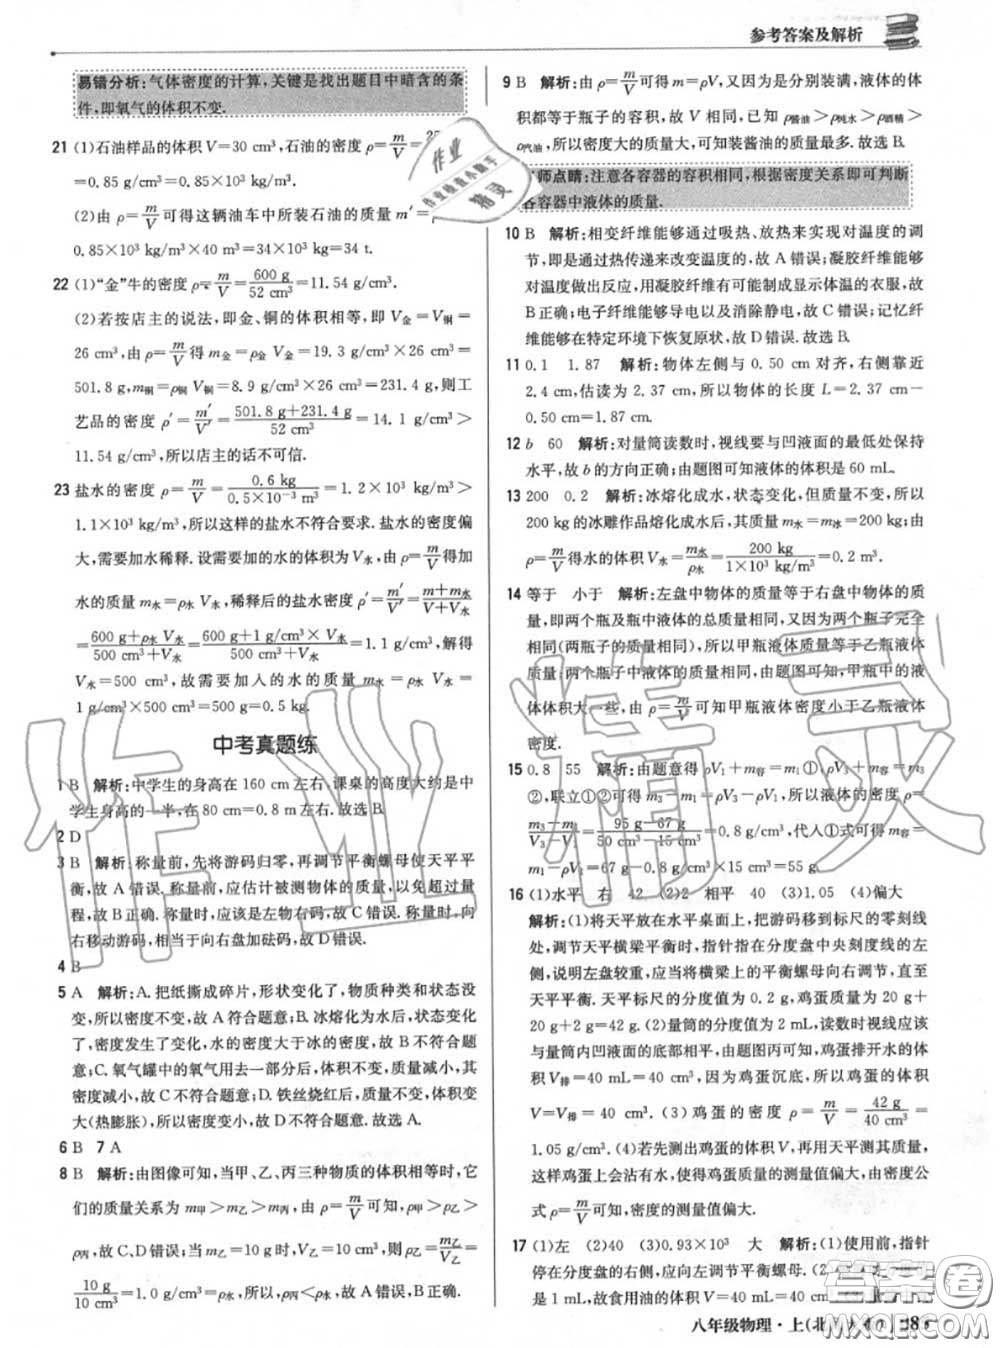 参考答案及解析
易错分析:气体密度的计算,关键是找出题目中暗含的条
件,即氧气的体积不变.
21 (1)石油样品的体积V=30 cm³,石油的密度ρ=m/V=
=0.85 g/cm³=0.85×10³ kg/m³.
(2)由ρ=m/V可得这辆油车中所装石油的质量m′=
0.85×10³ kg/m³×40 m³=34×10³ kg=34 t.
22 (1)“金”牛的密度ρ=m/V=600 g/52 cm³=11.54 g/cm³.
(2)若按店主的说法,即金、铜的体积相等,V金=V铜=
26 cm³,由ρ=m/V得m金=ρ金V金=19.3 g/cm³×26 cm³=
501.8 g,m铜=ρ铜V铜=8.9 g/cm³×26 cm³=231.4 g,则工
艺品的密度ρ′=m′/V′=(501.8 g+231.4 g)/52 cm³=14.1 g/cm³>
11.54 g/cm³,所以店主的话不可信.
23 盐水的密度ρ=m/V=0.6 kg/(0.5×10⁻³ m³)=1.2×10³ kg/m³>
1.1×10³ kg/m³,所以这样的盐水不符合要求.盐水的密度偏
大,需要加水稀释.设需要加的水的体积为V水,由ρ=m/V得加
水的质量m水=ρ水V水,稀释后的盐水密度ρ′=m′/V′=(m+m水)/(V+V水)
=(600 g+ρ水V水)/(500 cm³+V水)=(600 g+1 g/cm³×V水)/(500 cm³+V水)=1.1 g/cm³,解得
V水=500 cm³,故需要加入的水的质量m水=ρ水V水=
1 g/cm³×500 cm³=500 g=0.5 kg.
中考真题练
1 B 解析:中学生的身高在160 cm左右.课桌的高度大约是中
学生身高的一半,在80 cm=0.8 m左右.故选B.
2 D
3 B 解析:称量前,先将游码归零,再调节平衡螺母使天平平
衡,故A错误.称量前,应估计被测物体的质量,以免超过量
程,故B正确.称量时,应该是左物右码,故C错误.称量时,向
右移动游码,相当于向右盘加砝码,故D错误.
4 B
5 A 解析:A.把纸撕成碎片,形状变化了,物质种类和状态没
变,所以密度不变,故A符合题意;B.冰熔化为水后,状态变化
了,密度发生了变化,水的密度大于冰的密度,故B不符合题
意;C.氧气罐中的氧气用去一部分后,体积不变,质量减小,其
密度减小,故C不符合题意;D.铁丝烧红后,质量不变,体积变
大(热膨胀),所以密度变小,故D不符合题意.故选A.
6 B 7 A
8 B 解析:由图像可知,当甲、乙、丙三种物质的体积相等时,它
们的质量关系为m甲>m乙>m丙,由ρ=m/V可知,ρ甲>ρ乙>
ρ丙,故C、D错误;当m乙=10 g时,V乙=10 cm³,ρ乙=m乙/V乙=
10 g/10 cm³=1.0 g/cm³=ρ水,所以ρ丙<ρ水,故A错误,B正确.
9 B 解析:由ρ=m/V可得m=ρV,又因为都装满水,液体的体
积都等于瓶子的容积,故V相同,已知ρ酱油>ρ纯水>ρ酒精>
ρ汽油,所以密度大的质量大,可知装酱油的质量最多.故选B.
师点睛:注意各容器的容积相同,根据密度关系即可判断
各容器中液体的质量.
10 B 解析:相变纤维能够通过吸热、放热来实现对温度的调
节,即通过热传递来改变温度的,故A错误;凝胶纤维能够
对温度做出反应,用凝胶纤维有可能制成显示体温的衣服,故
B正确;电子纤维能够导电以及消除静电,故C错误;记忆纤
维能够在特定环境下恢复原状,故D错误.故选B.
11 0.1 1.87 解析:物体左侧与0.50 cm对齐,右侧靠近
2.4 cm,估读为2.37 cm,所以物体的长度L=2.37 cm-
0.50 cm=1.87 cm.
12 b 60 解析:对量筒读数时,视线要与凹液面的最低处保持
水平,故b的方向正确;由题图可知液体的体积是60 mL.
13 200 0.2 解析:冰熔化成水,状态变化,但质量不变,所以
200 kg的冰雕作品熔化成水后,其质量m水=m冰=200 kg;
由ρ=m/V得水的体积V水=m水/ρ水=200 kg/(1×10³ kg/m³)=0.2 m³.
14 等于 小于 解析:左盘中物体的质量等于右盘中物体的质
量,即两个瓶及瓶中液体的总质量相同,又因为两个瓶子完全
相同(两瓶子的质量相同),所以甲瓶液体质量等于乙瓶液体
质量;两个瓶子中液体的质量相同,由图可知,甲瓶中的液
体体积大一些,由ρ=m/V可知甲瓶液体密度小于乙瓶液体
密度.
15 0.8 55 解析:由题意得ρV₁+m容=m₁①,ρV₃+m容=m₃
②,联立①②可得m₃-m₁=ρV₃-ρV₁,所以液体的密度ρ=
(m₃-m₁)/(V₃-V₁)=(95 g-67 g)/(50 cm³-15 cm³)=0.8 g/cm³,代入①式可得m容=
m₁-ρV₁=67 g-0.8 g/cm³×15 cm³=55 g.
16 (1)水平 右 42 (2)2 相平 40 (3)1.05 (4)偏大
解析:(1)将天平放在水平桌面上,把游码移到标尺的零刻线
处,调节天平横梁平衡时,指针指在分度盘中央刻度线的左
侧,说明左盘较重,应将横梁上的平衡螺母向右调节,直到
天平平衡.天平标尺的分度值为0.2 g,鸡蛋质量为20 g+
20 g+2 g=42 g.(2)量筒的分度值为2 mL,读数时视线应与
量筒内凹液面的底部相平,由题图丙可知,鸡蛋排开水的体
积V排=40 mL=40 cm³,因为鸡蛋沉底,所以鸡蛋的体积
V=V排=40 cm³.(3)鸡蛋的密度ρ=m/V=42 g/40 cm³=
1.05 g/cm³.(4)若先测出鸡蛋的体积V,再用天平测其质量,
这时鸡蛋上会沾有水,使得鸡蛋质量的测量值偏大,根据公
式ρ=m/V可知,密度的测量值偏大.
17 (1)左 (2)40 (3)0.93×10³ 大 解析:(1)使用前,指针
停在分度盘的右侧,应向左调节平衡螺母.(2)
mL,故食用油的体积为
八年级物理·上(北
作业
作业检查小助手
精灵
作业精灵
答案卷